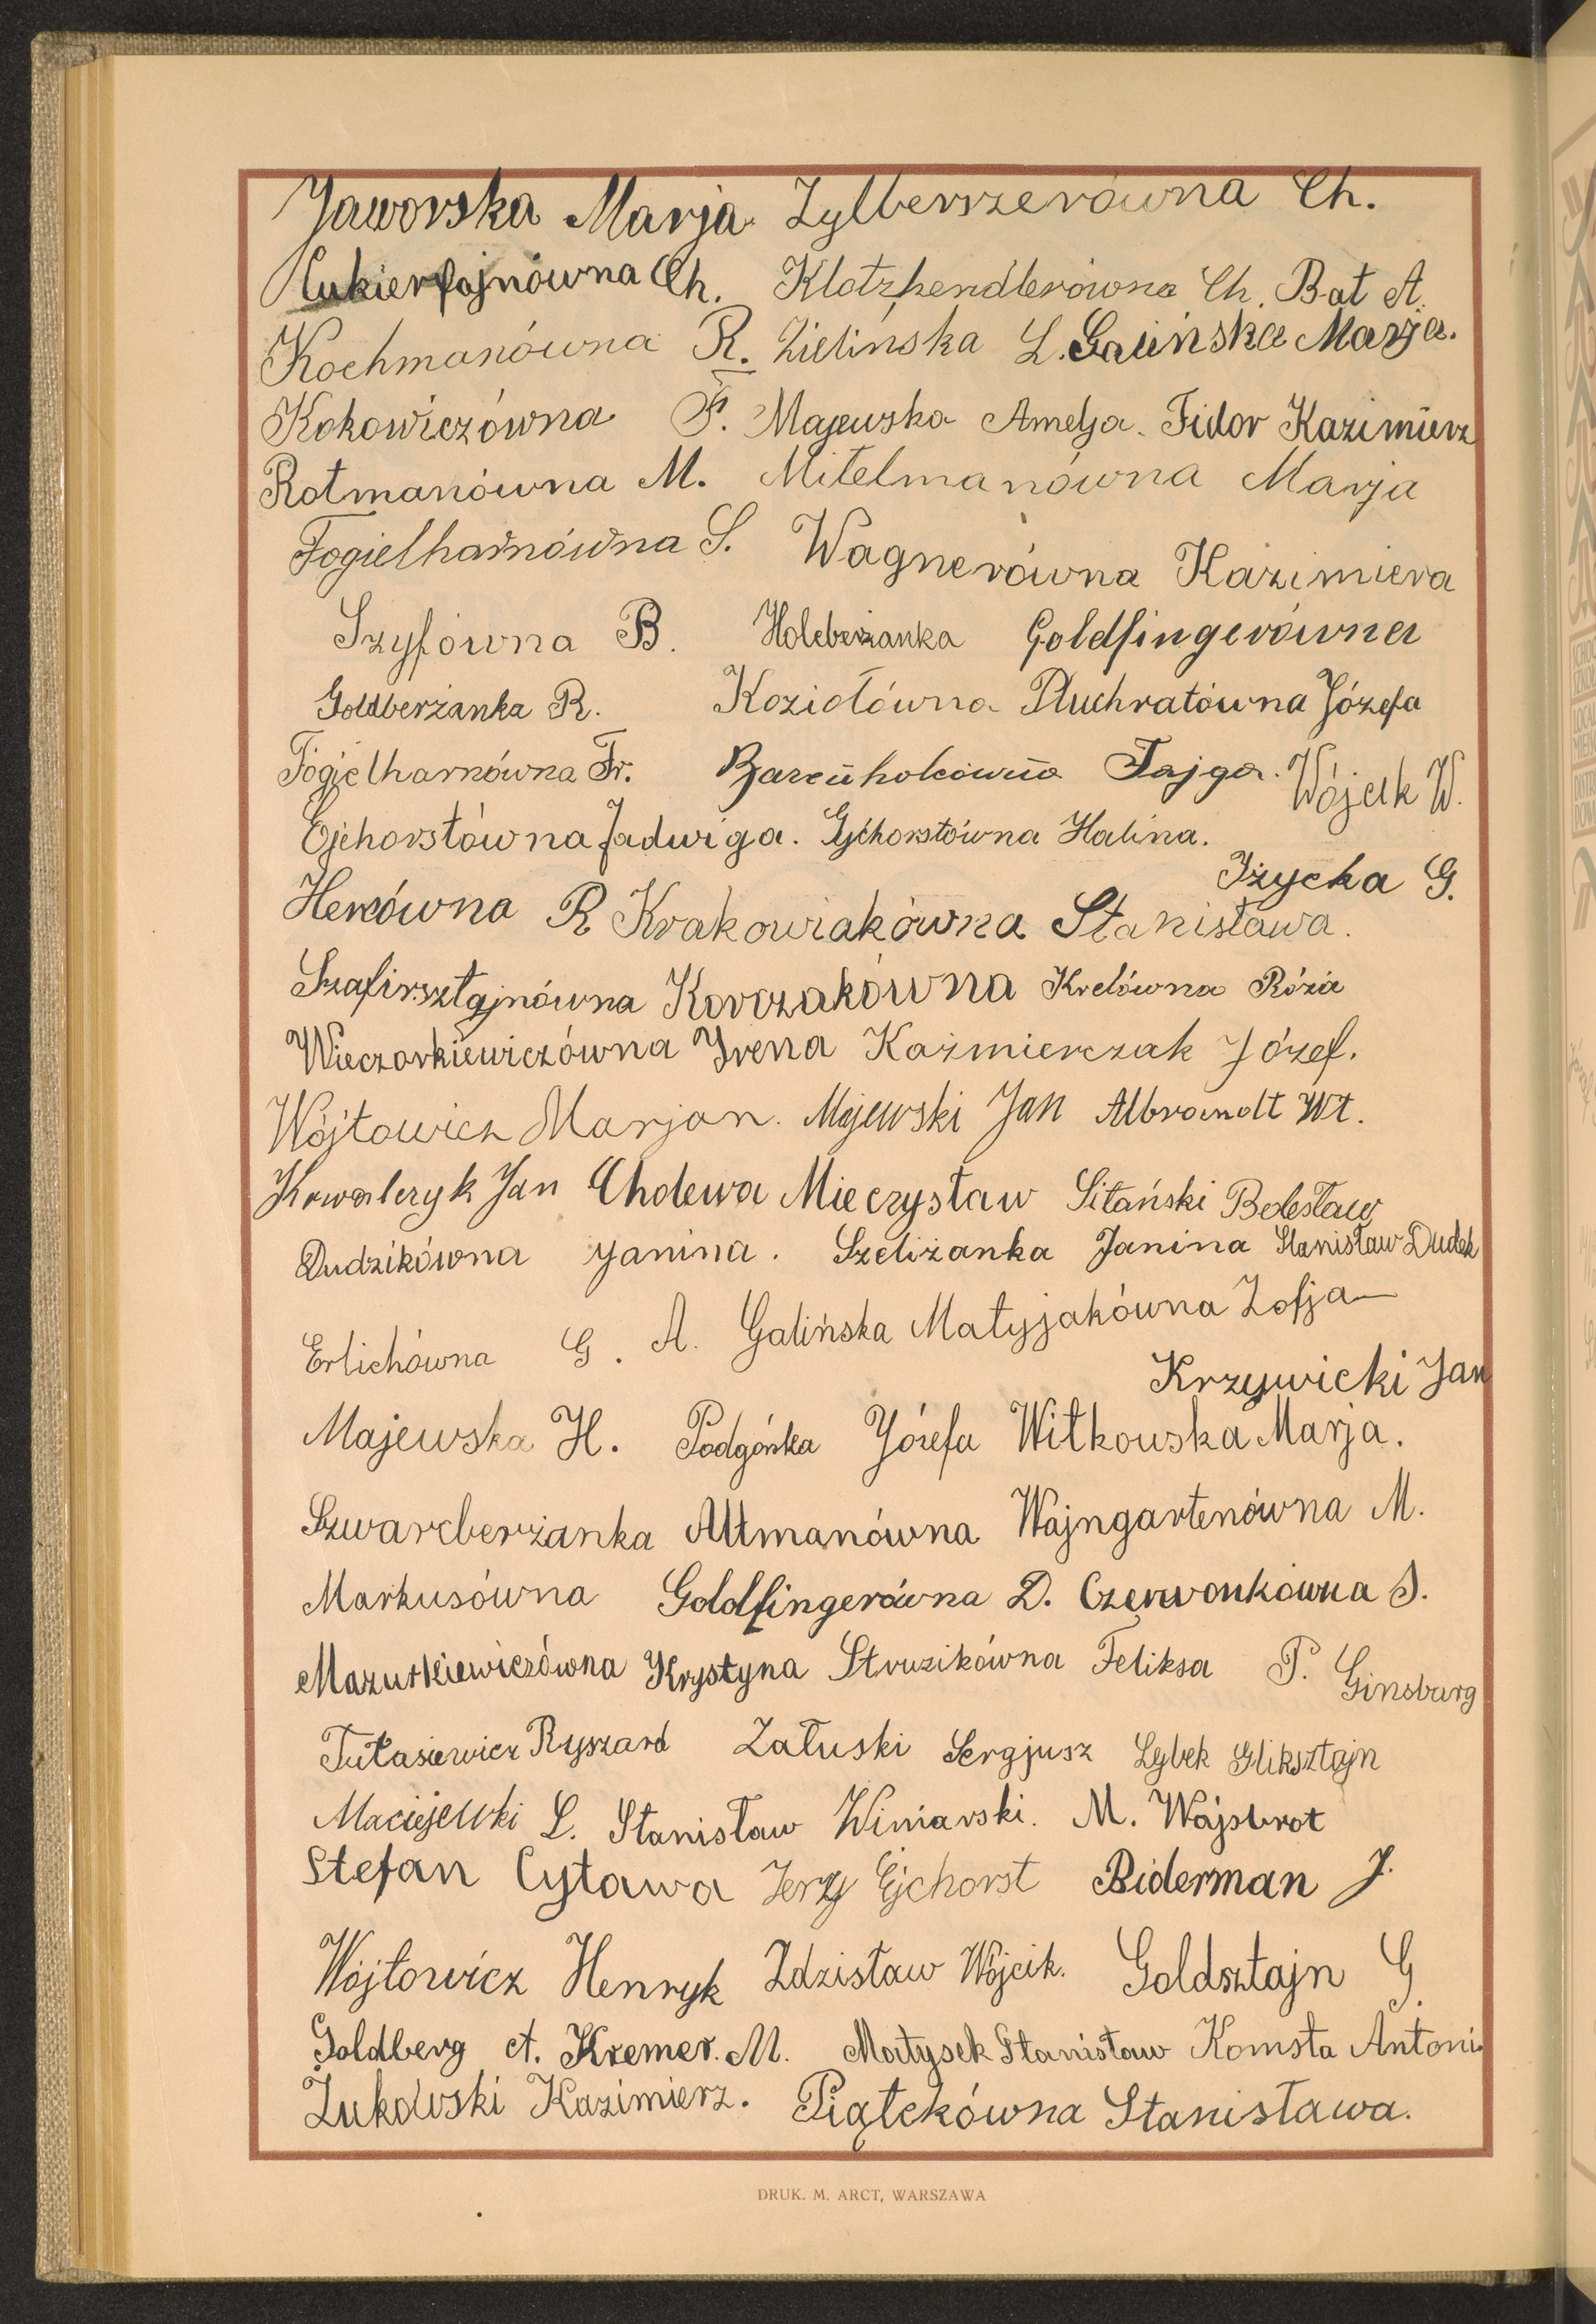 Jaworska Marja Zylberszerówna Ch.
Cukierfajnówna Ch. Klotzhendlerówna Ch. Bat A.
Kochmanówna R. Zielińska L. Galińska Marja.
Kokowiczówna F. Majewska Amelja. Fidor Kazimierz
Rotmanówna M. Mitelmanówna Marja
Fogielharnówna S. Wagnerówna Kazimiera
Szyfówna B. Holcberżanka Goldfingerówna
Goldberżanka R. Koziołówna Pluchratówna Józefa
Fogielharnówna Fr. Fajga. Wójcik W.
Ejchorstówna Jadwiga. Ejchorstówna Halina.
Iżycka G.
Hercówna R Krakowiakówna Stanisława.
Szafirsztajnówna Korczakówna Krelówna Róża
Wieczorkiewiczówna Irena Kaźmierczak Józef.
Wójtowicz Marjan. Majewski Jan Albrandt Wł.
Kowalczyk Jan Cholewa Mieczysław Sitański Bolesław
Dudzikówna Janina. Szeliżanka Janina Stanisław Dudek
Erlichówna G. A. Galińska Matyjakówna Zofja
Krzywicki Jan
Majewska H. Podgórska Józefa Witkowska Marja.
Szwarcberżanka Altmanówna Wajngartenówna M.
Markusówna Goldfingerówna D. Czerwonkówna S.
Mazurkiewiczówna Krystyna Struzikówna Feliksa P. Ginsburg
Tutasiewicz Ryszard Załuski Sergjusz Lybek Gliksztajn
Maciejewki L. Stanisław Winiarski. M. Wajsbrot
Stefan Cytawa Jerzy Ejchorst Biderman J.
Wójtowicz Henryk Zdzisław Wójcik. Goldsztajn G.
Goldberg A. Kremer. M. Matysek Stanisław Komsta Antoni
Żukowski Kazimierz. Piątekówna Stanisława.
DRUK. M. ARCT, WARSZAWA